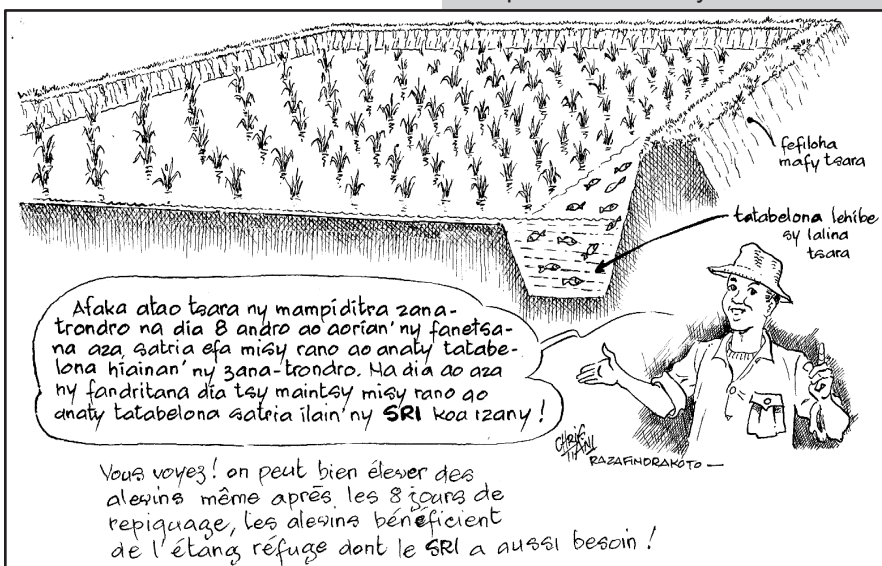 fefiloha
mafy tsara
tatabelona lehibe
sy lalina
tsara
Afaka atao tsara ny mampiditra zana-
trondro na dia 8 andro ao aorian' ny fanetsa-
na aza, satria efa misy rano ao anaty tatabe-
lona hiainan' ny zana-trondro. Na dia ao aza
ny fandritana dia tsy maintsy misy rano ao
anaty tatabelona satria ilain' ny SRI koa izany !
CHRIS
TIANI
RAZAFINDRAKOTO —
Vous voyez! on peut bien élever des
alevins même après les 8 jours de
repiquage, les alevins bénéficient
de l'étang réfuge dont le SRI a aussi besoin !